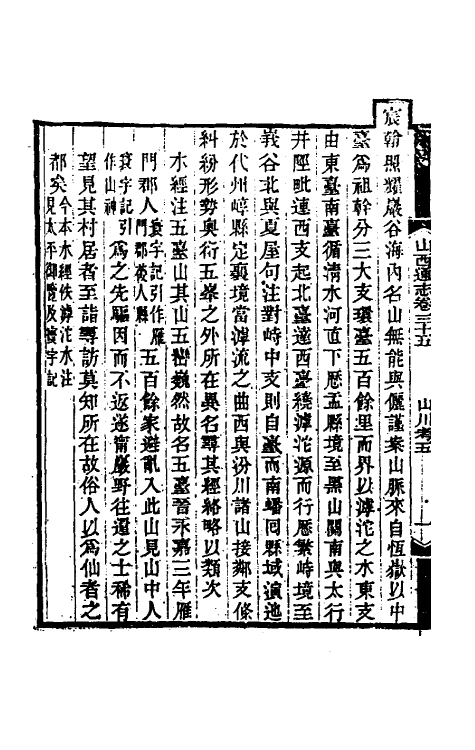 宸翰照耀巖谷海內名山無能與儷謹案山脈來自恆嶽以中
臺爲祖幹分三大支環臺五百餘里而界以滹沱之水東支
由東臺南臺循清水河直下歷盂縣境至黑山關南與太行
井陘毗連西支起北臺達西臺繞滹沱源而行歷繁峙境至
峩谷北與夏屋句注對峙中支則自臺而南蟠回縣域演迤
於代州崞縣定襄境當滹流之曲西與汾川諸山接鄰支條
糾紛形勢奧衍五峯之外所在異名尋其經絡略以類次
水經注五臺山其山五巒巍然故名五臺晉永嘉三年雁
門郡人寰宇記引作雁門郡葰人縣五百餘家避亂入此山見山中人
寰宇記引作山神爲之先驅因而不返遂甯巖野往還之士稀有
望見其村居者至詣尋訪莫知所在故俗人以爲仙者之
都矣今本水經佚滹沱水注見太平御覽及寰宇記
山西通志卷三十五
山川考五
一